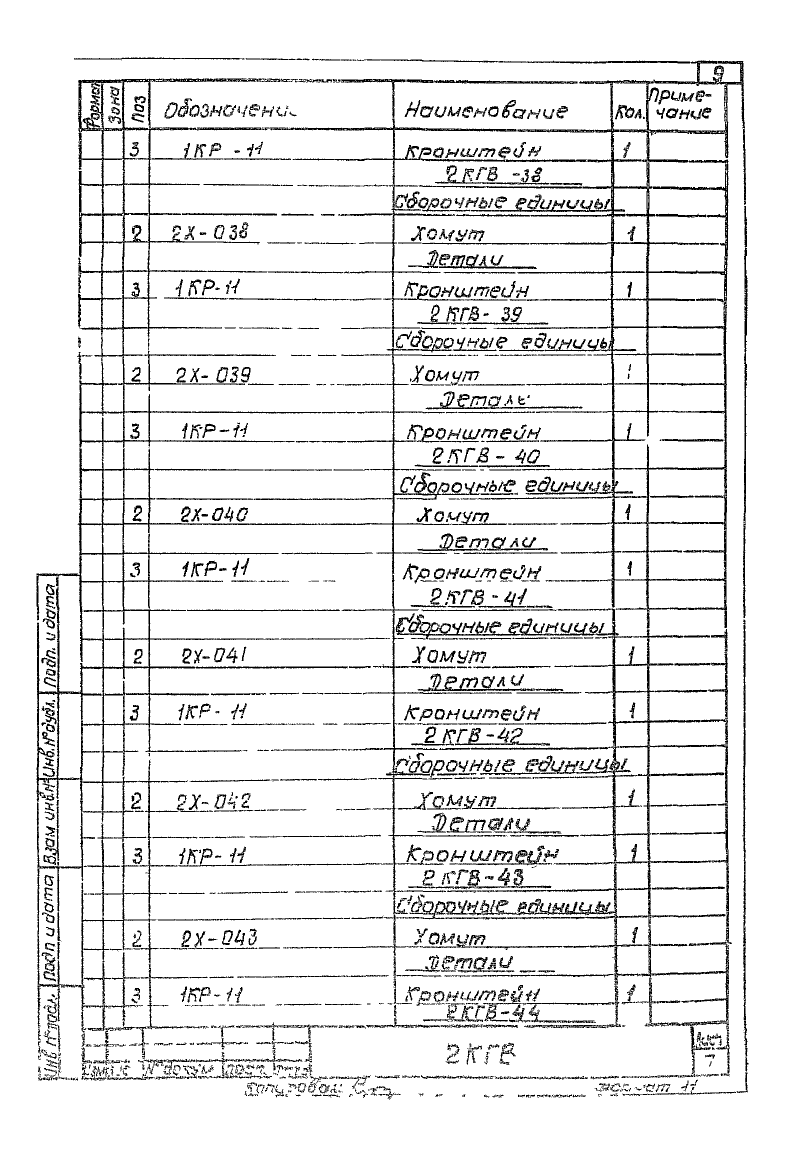 9
Формат Зона Поз Обозначени Наименование Кол. Приме-
чание
3 1КР-11 Кронштейн 1
2КГВ-38
Сборочные единицы
2 2Х-038 Хомут 1
Детали
3 1КР-11 Кронштейн 1
2КГВ-39
Сборочные единицы
2 2Х-039 Хомут 1
Детали
3 1КР-11 Кронштейн 1
2КГВ-40
Сборочные единицы
2 2Х-040 Хомут 1
Детали
3 1КР-11 Кронштейн 1
2КГВ-41
Сборочные единицы
2 2Х-041 Хомут 1
Детали
3 1КР-11 Кронштейн 1
2КГВ-42
Сборочные единицы
2 2Х-042 Хомут 1
Детали
3 1КР-11 Кронштейн 1
2КГВ-43
Сборочные единицы
2 2Х-043 Хомут 1
Детали
3 1КР-11 Кронштейн 1
2КГВ-44
Инв. № подл. Подп и дата Взам инв.№ Инв.№ дубл. Подп. и дата
№ докум Подп.
2КГВ
Лист
7
Копировал: формат 11